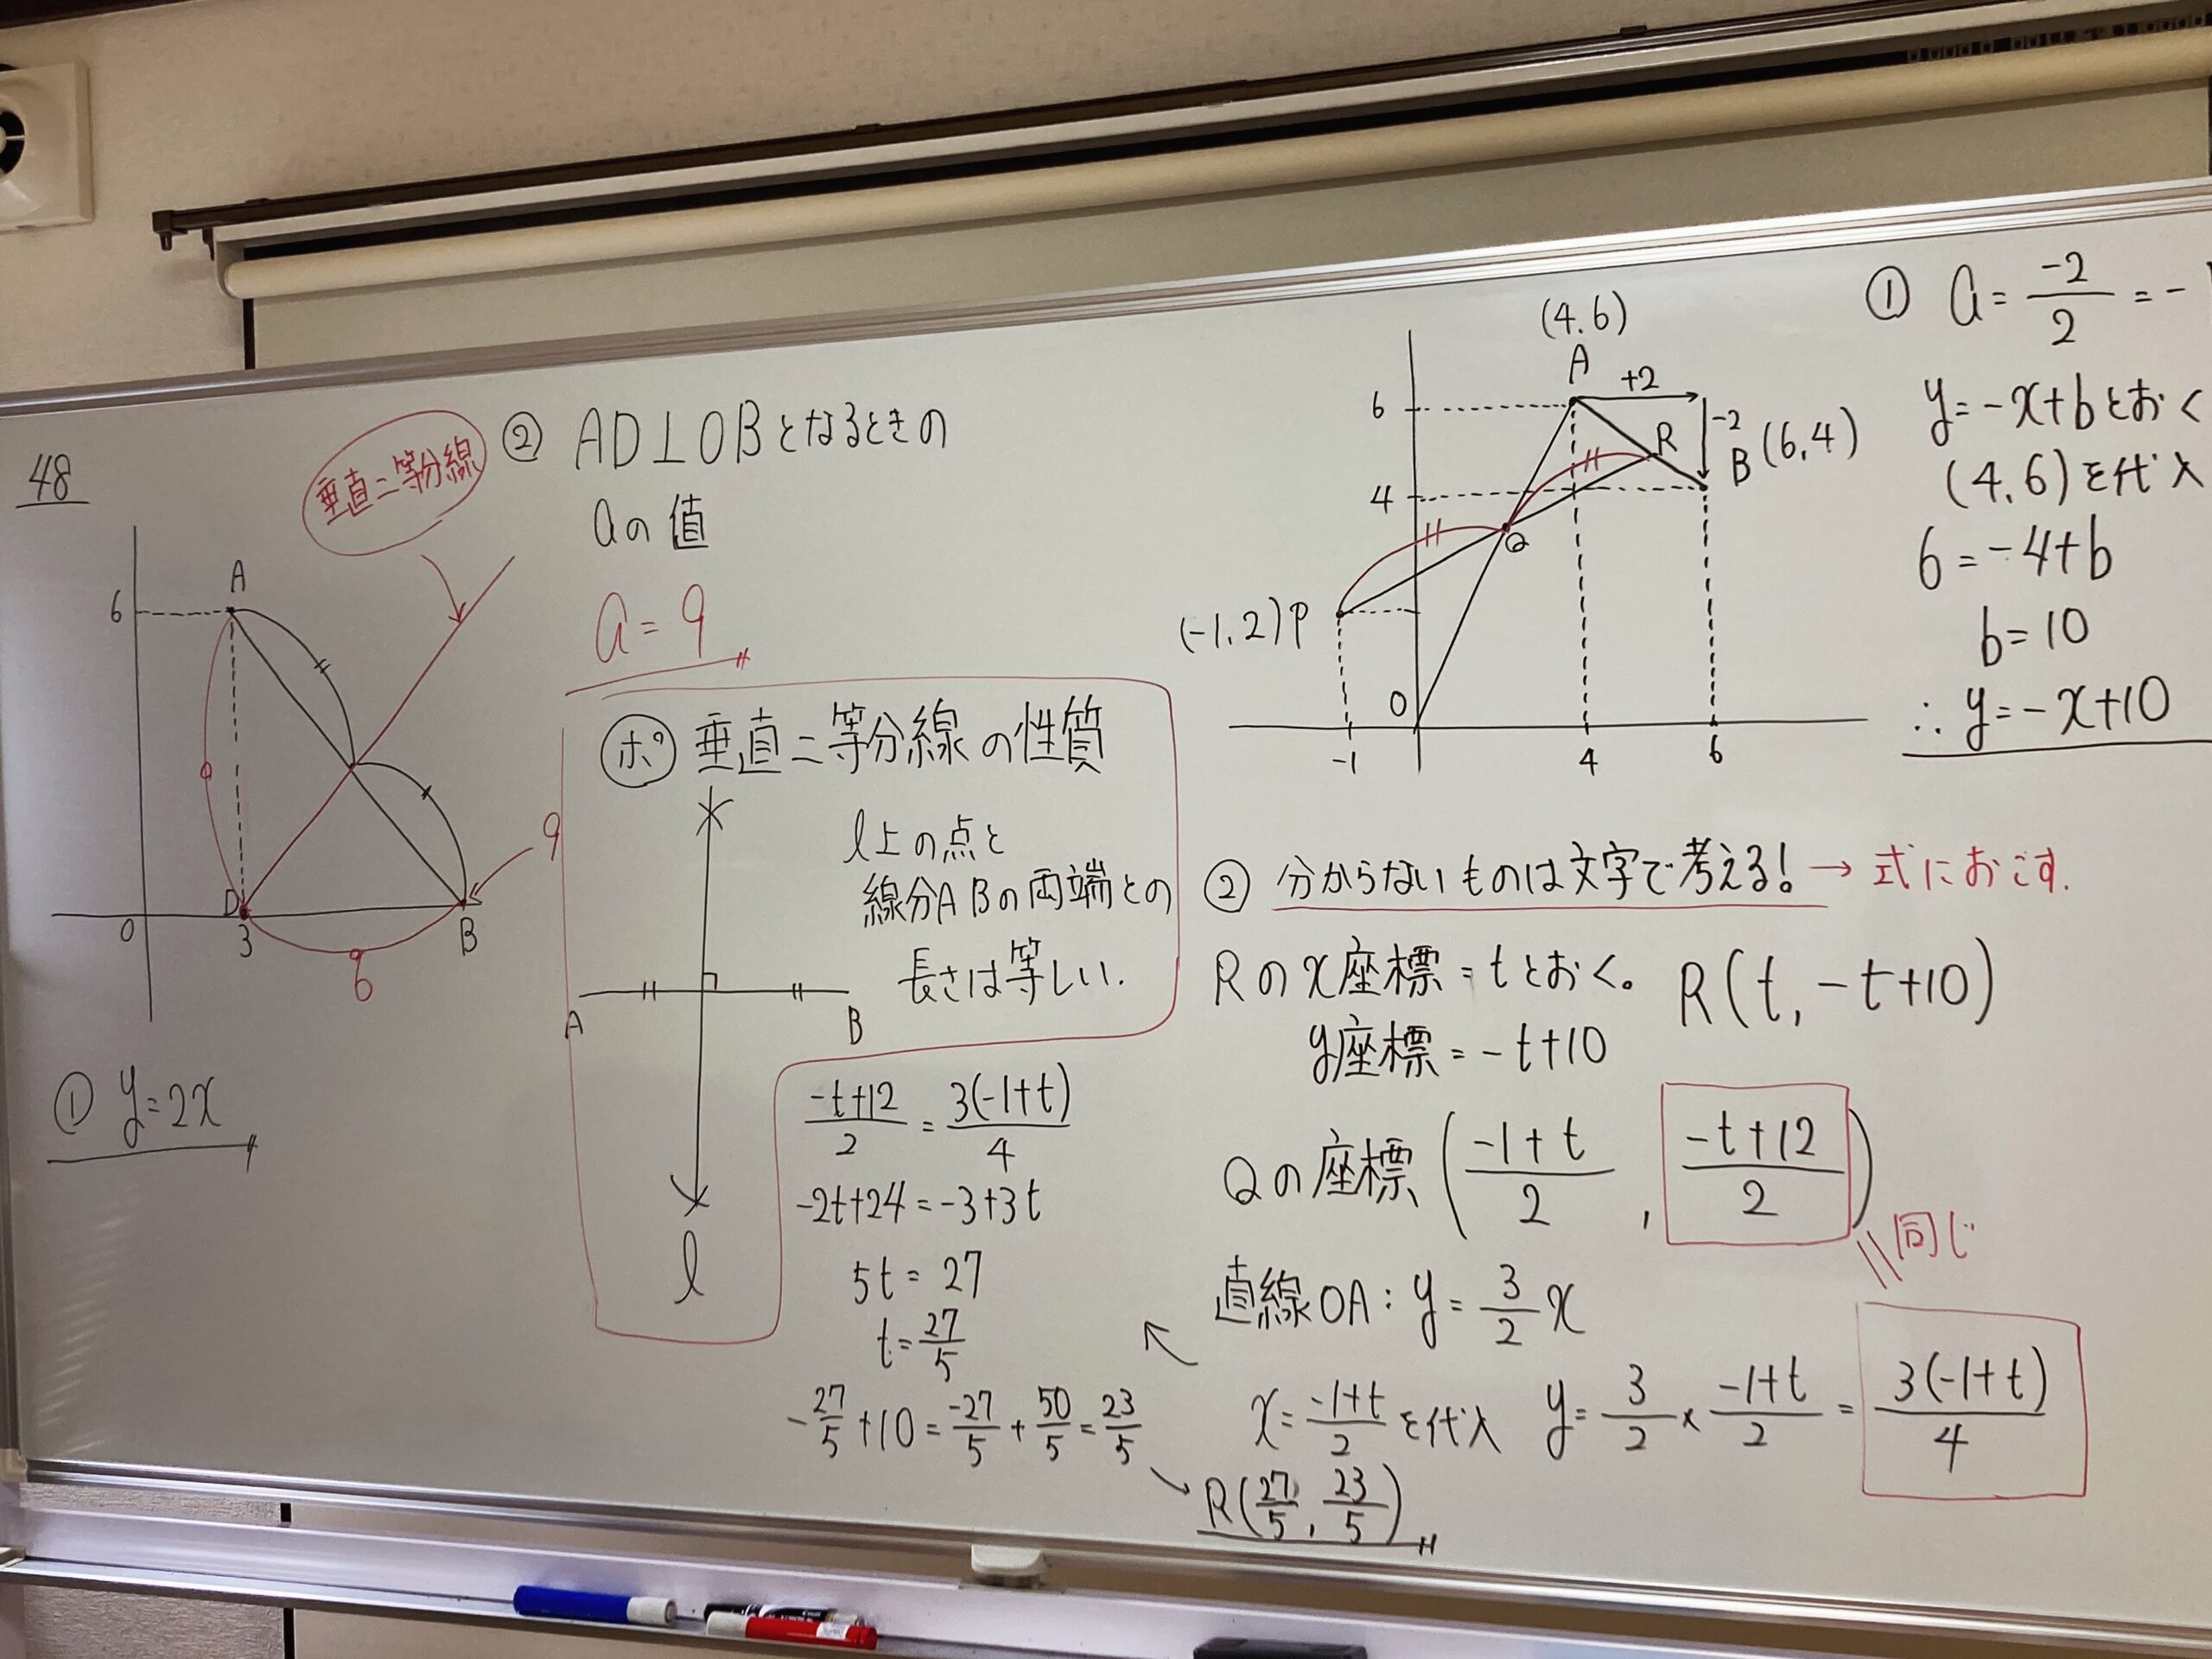 48
垂直二等分線
② AD⊥OBとなるときの
aの値
a=9
A
6
D
O
3
B
9
6
① y=2x
ポ 垂直二等分線の性質
l上の点と
線分ABの両端との
長さは等しい.
A
B
l
(-t+12)/2 = 3(-1+t)/4
-2t+24=-3+3t
5t=27
t=27/5
-27/5+10=-27/5+50/5=23/5
R(27/5, 23/5)
(4.6)
A
+2
6
-2
R
B(6,4)
4
Q
(-1.2)P
O
-1
4
6
① a=-2/2=-
y=-x+bとおく
(4.6)を代入
6=-4+b
b=10
∴ y=-x+10
② 分からないものは文字で考える! → 式におこす.
Rのx座標=tとおく。 R(t, -t+10)
y座標=-t+10
Qの座標((-1+t)/2, (-t+12)/2)
同じ
直線OA: y=3/2x
x=(-1+t)/2を代入 y=3/2×(-1+t)/2=3(-1+t)/4